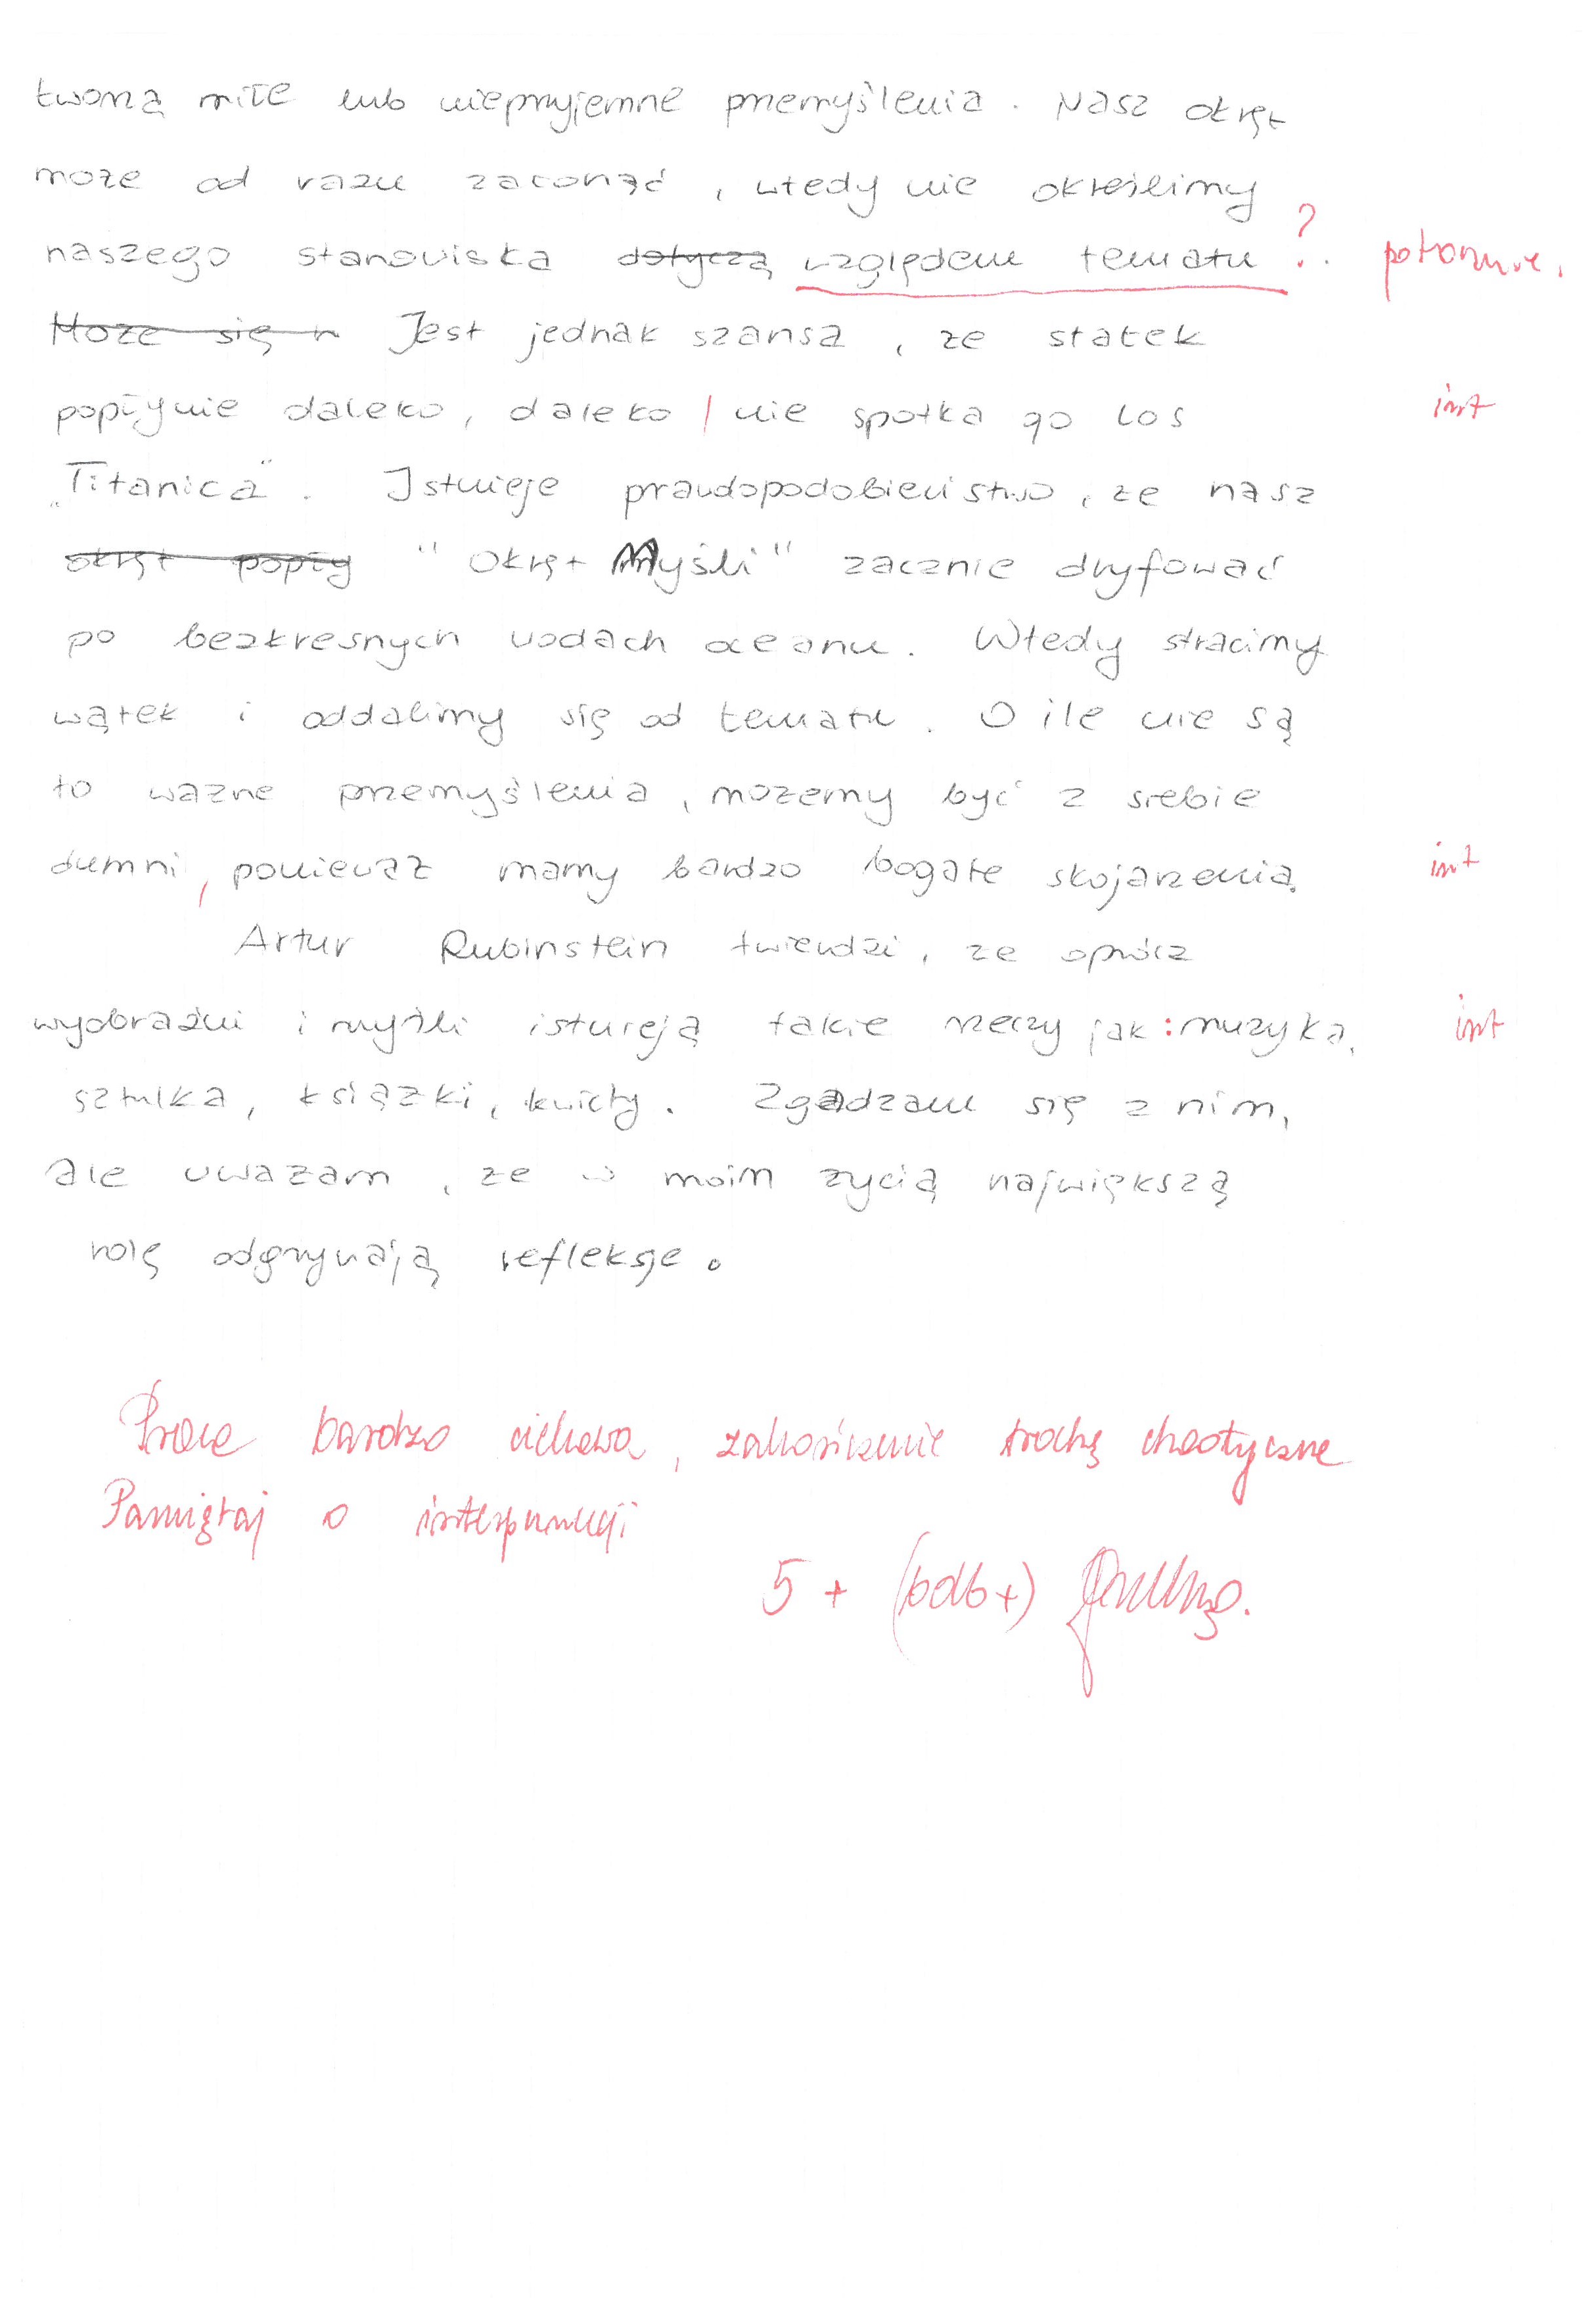 tworzą miłe lub nieprzyjemne przemyślenia. Nasz okręt
może od razu zatonąć, wtedy nie określimy
naszego stanowiska dotyczą względem tematu ?.
Może się n Jest jednak szansa, że statek
popłynie daleko, daleko / nie spotka go los int
„Titanica". Istnieje prawdopodobieństwo, że nasz
okręt popły "Okręt Myśli" zacznie dryfować
po bezkresnych wodach oceanu. Wtedy stracimy
wątek i oddalimy się od tematu. O ile nie są
to ważne przemyślenia, możemy być z siebie
dumni, ponieważ mamy bardzo bogate skojarzenia. int
Artur Rubinstein twierdzi, że oprócz
wyobraźni i myśli istnieją takie rzeczy jak: muzyka, int
sztuka, książki, kwiaty. Zgadzam się z nim,
ale uważam, że w moim życią największą
rolę odgrywają refleksje.
Praca bardzo ciekawa, zakończenie trochę chaotyczne
Pamiętaj o interpunkcji
5+ (bdb+)